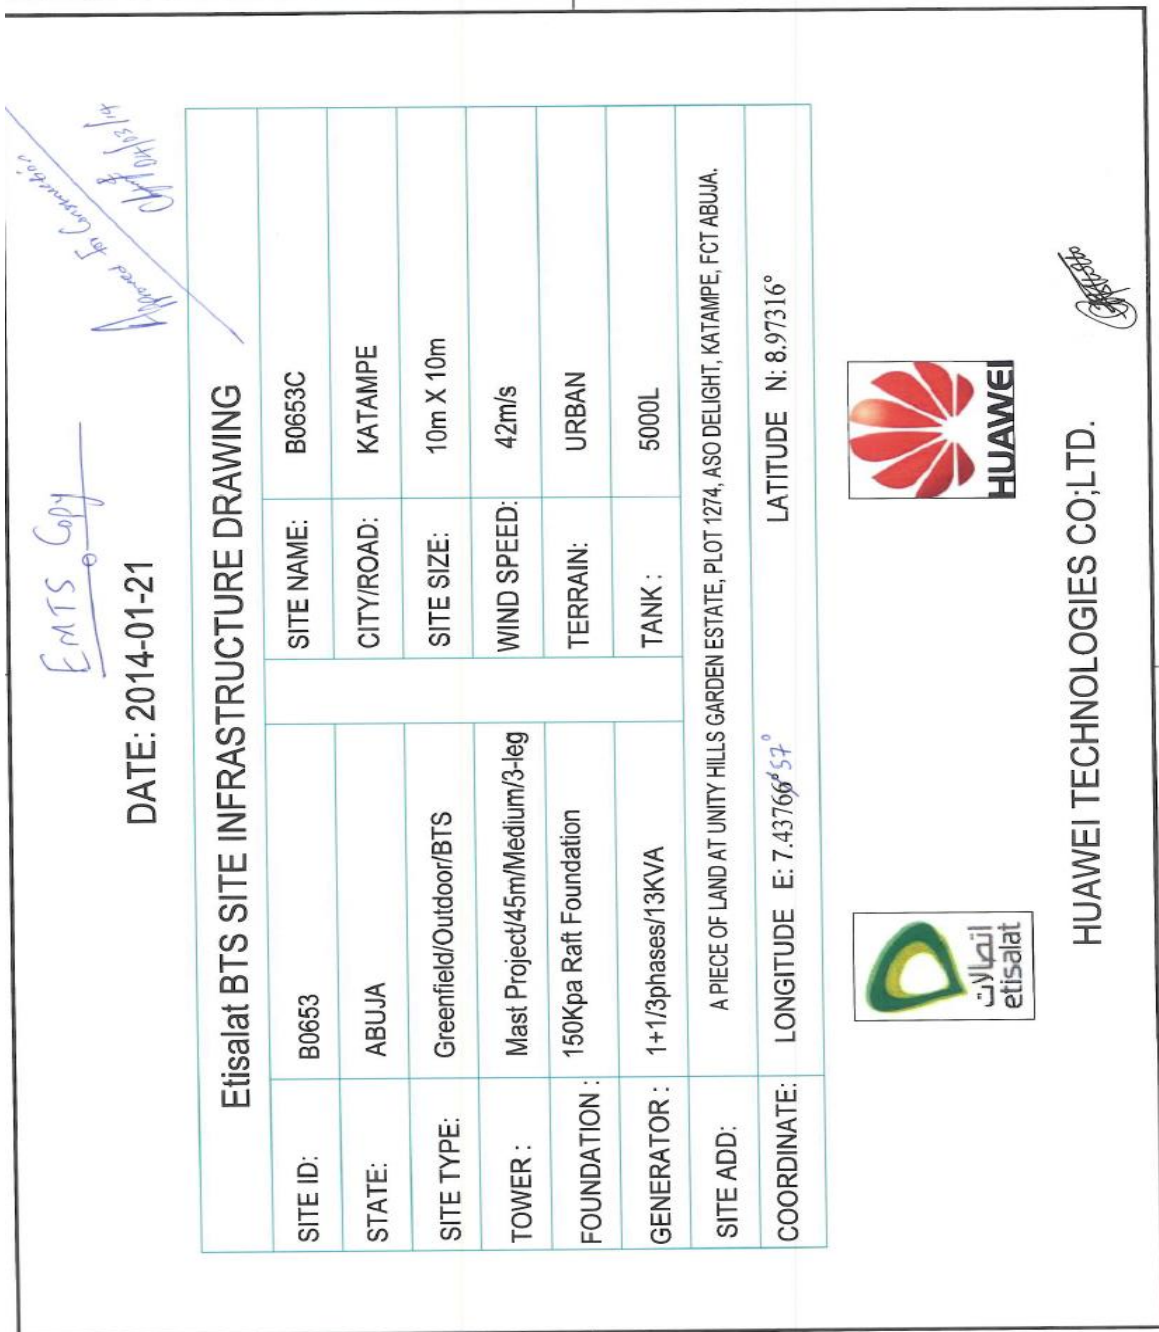 EMTS Copy
Approved for Construction
04/03/14
DATE: 2014-01-21
Etisalat BTS SITE INFRASTRUCTURE DRAWING
SITE ID: B0653 SITE NAME: B0653C
STATE: ABUJA CITY/ROAD: KATAMPE
SITE TYPE: Greenfield/Outdoor/BTS SITE SIZE: 10m X 10m
TOWER : Mast Project/45m/Medium/3-leg WIND SPEED: 42m/s
FOUNDATION : 150Kpa Raft Foundation TERRAIN: URBAN
GENERATOR : 1+1/3phases/13KVA TANK : 5000L
SITE ADD: A PIECE OF LAND AT UNITY HILLS GARDEN ESTATE, PLOT 1274, ASO DELIGHT, KATAMPE, FCT ABUJA.
COORDINATE: LONGITUDE E: 7.43766° 57° LATITUDE N: 8.97316°
اتصالات
etisalat
HUAWEI
HUAWEI TECHNOLOGIES CO;LTD.